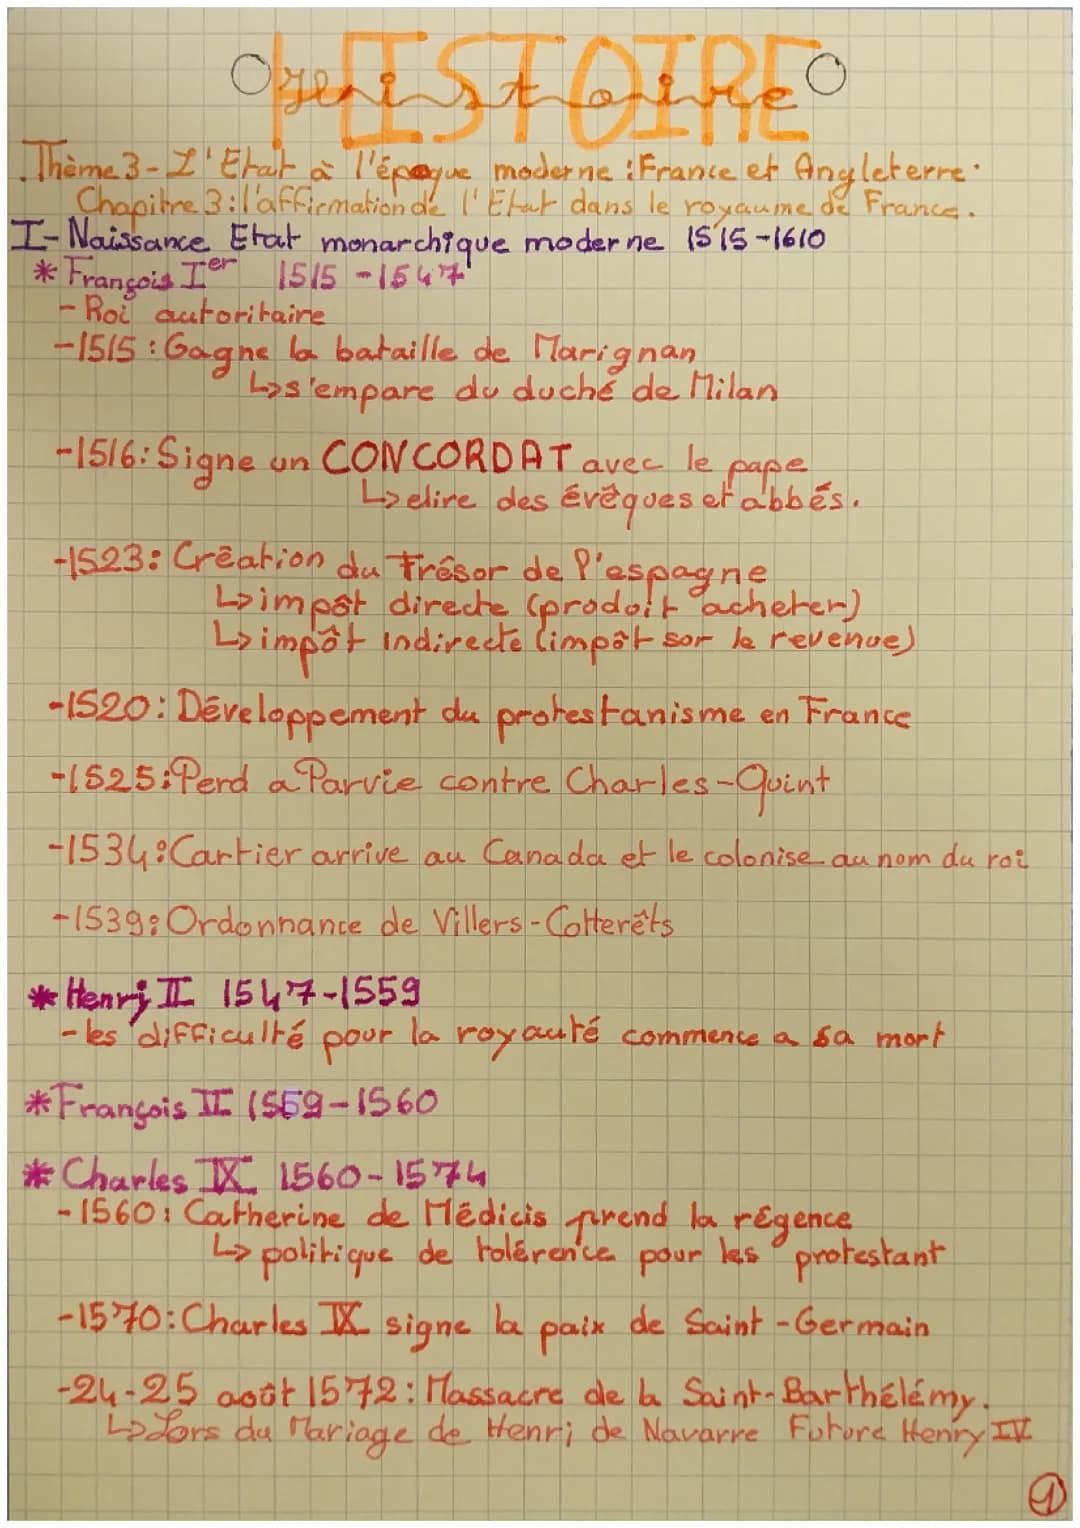 HISTOIRE
Histoire
Thème 3 - L'Etat à l'époque moderne : France et Angleterre.
Chapitre 3 : l'affirmation de l'Etat dans le royaume de France.
I- Naissance Etat monarchique moderne 1515-1610
* François Ier 1515-1547
- Roi autoritaire
-1515 : Gagne la bataille de Marignan
↳s'empare du duché de Milan
-1516: Signe un CONCORDAT avec le pape
↳elire des évêques et abbés.
-1523: Création du Trésor de l'espagne
↳impôt directe (produit acheter)
↳impôt indirecte (impôt sur le revenue)
-1520: Développement du protestanisme en France
-1525: Perd a Parvie contre Charles-Quint
-1534: Cartier arrive au Canada et le colonise au nom du roi
-1539: Ordonnance de Villers-Cotterêts
* Henri II 1547-1559
- les difficulté pour la royauté commence a sa mort
* François II 1559-1560
* Charles IX 1560-1574
-1560: Catherine de Médicis prend la régence
↳ politique de tolérence pour les protestant
-1570: Charles IX signe la paix de Saint-Germain
-24-25 août 1572: Massacre de la Saint-Barthélémy.
↳Lors du Mariage de Henri de Navarre Future Henry IV
1